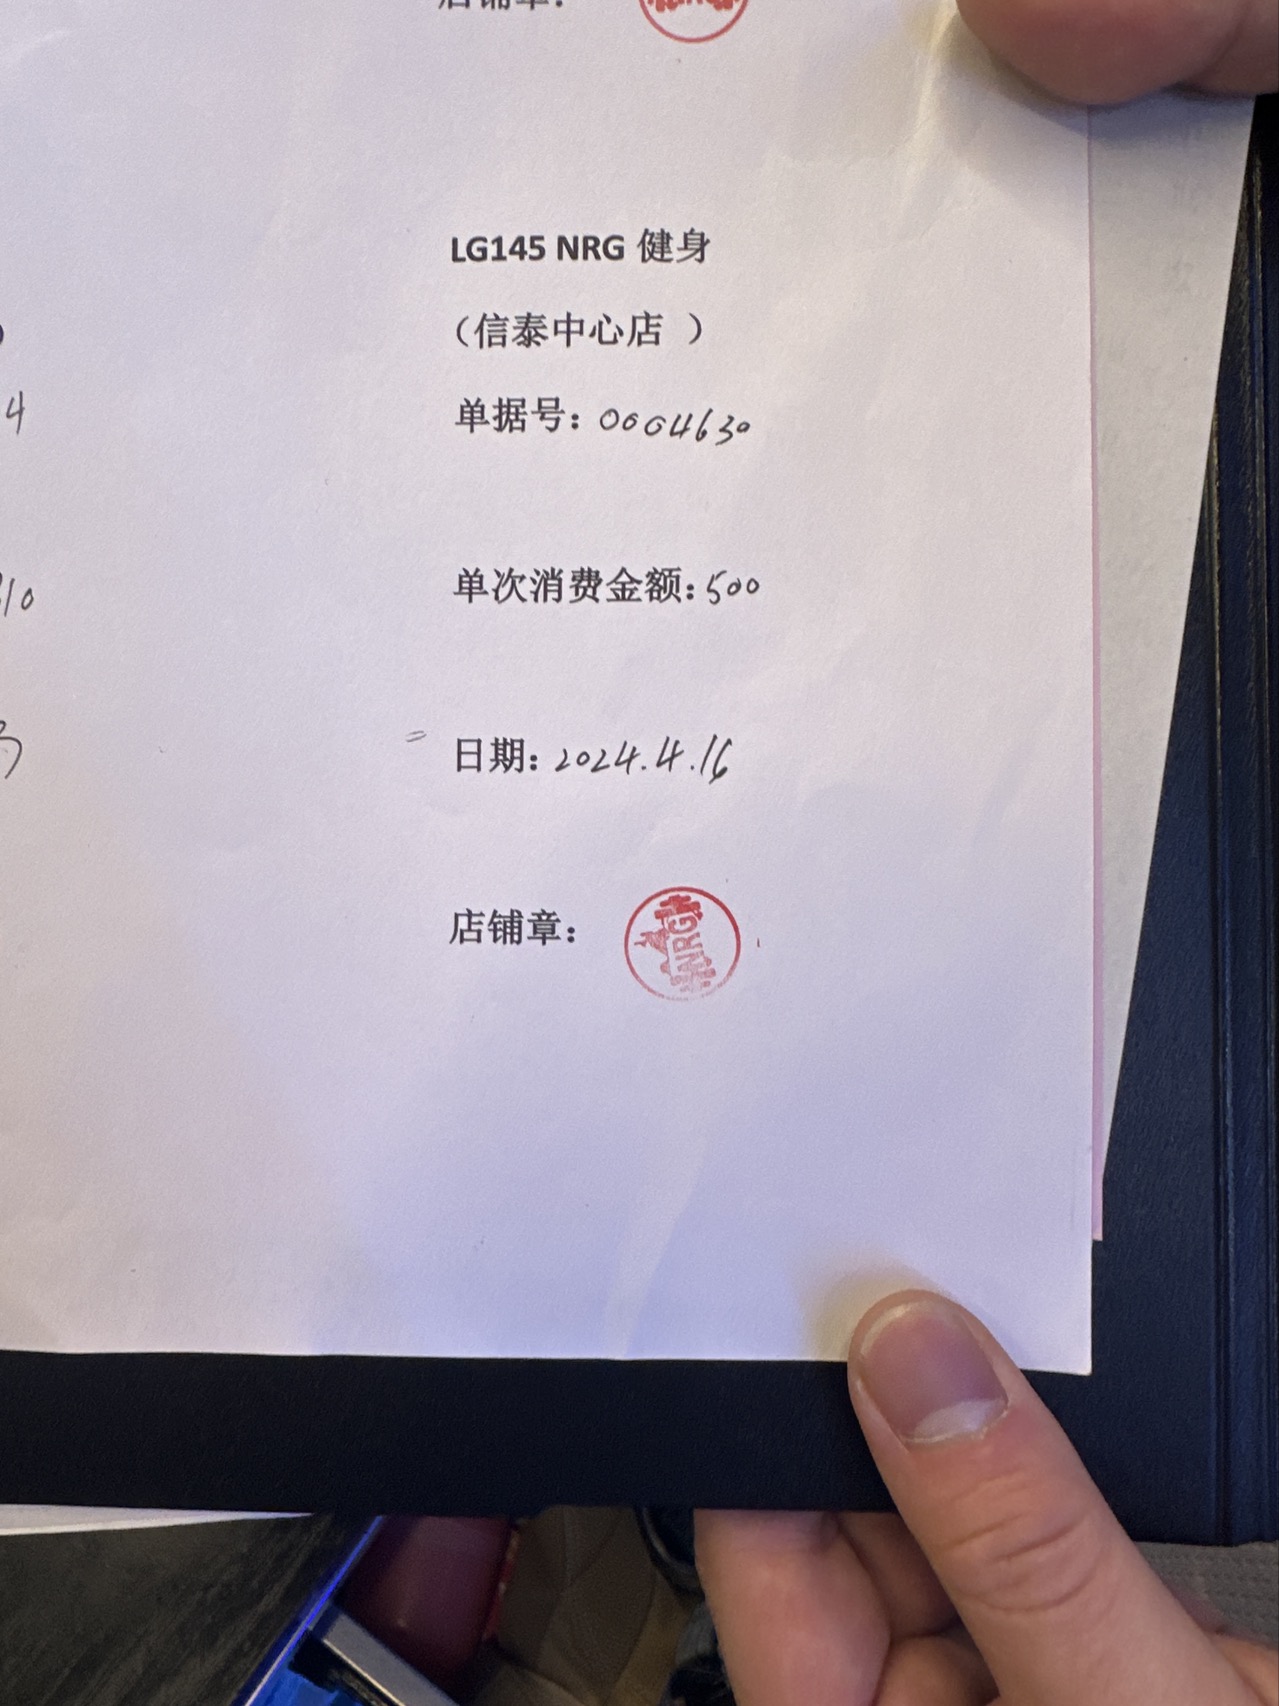 店铺章：
LG145 NRG 健身
（信泰中心店 ）
4
单据号：0004630
10
单次消费金额：500
日期：2024.4.16
店铺章：
NRG